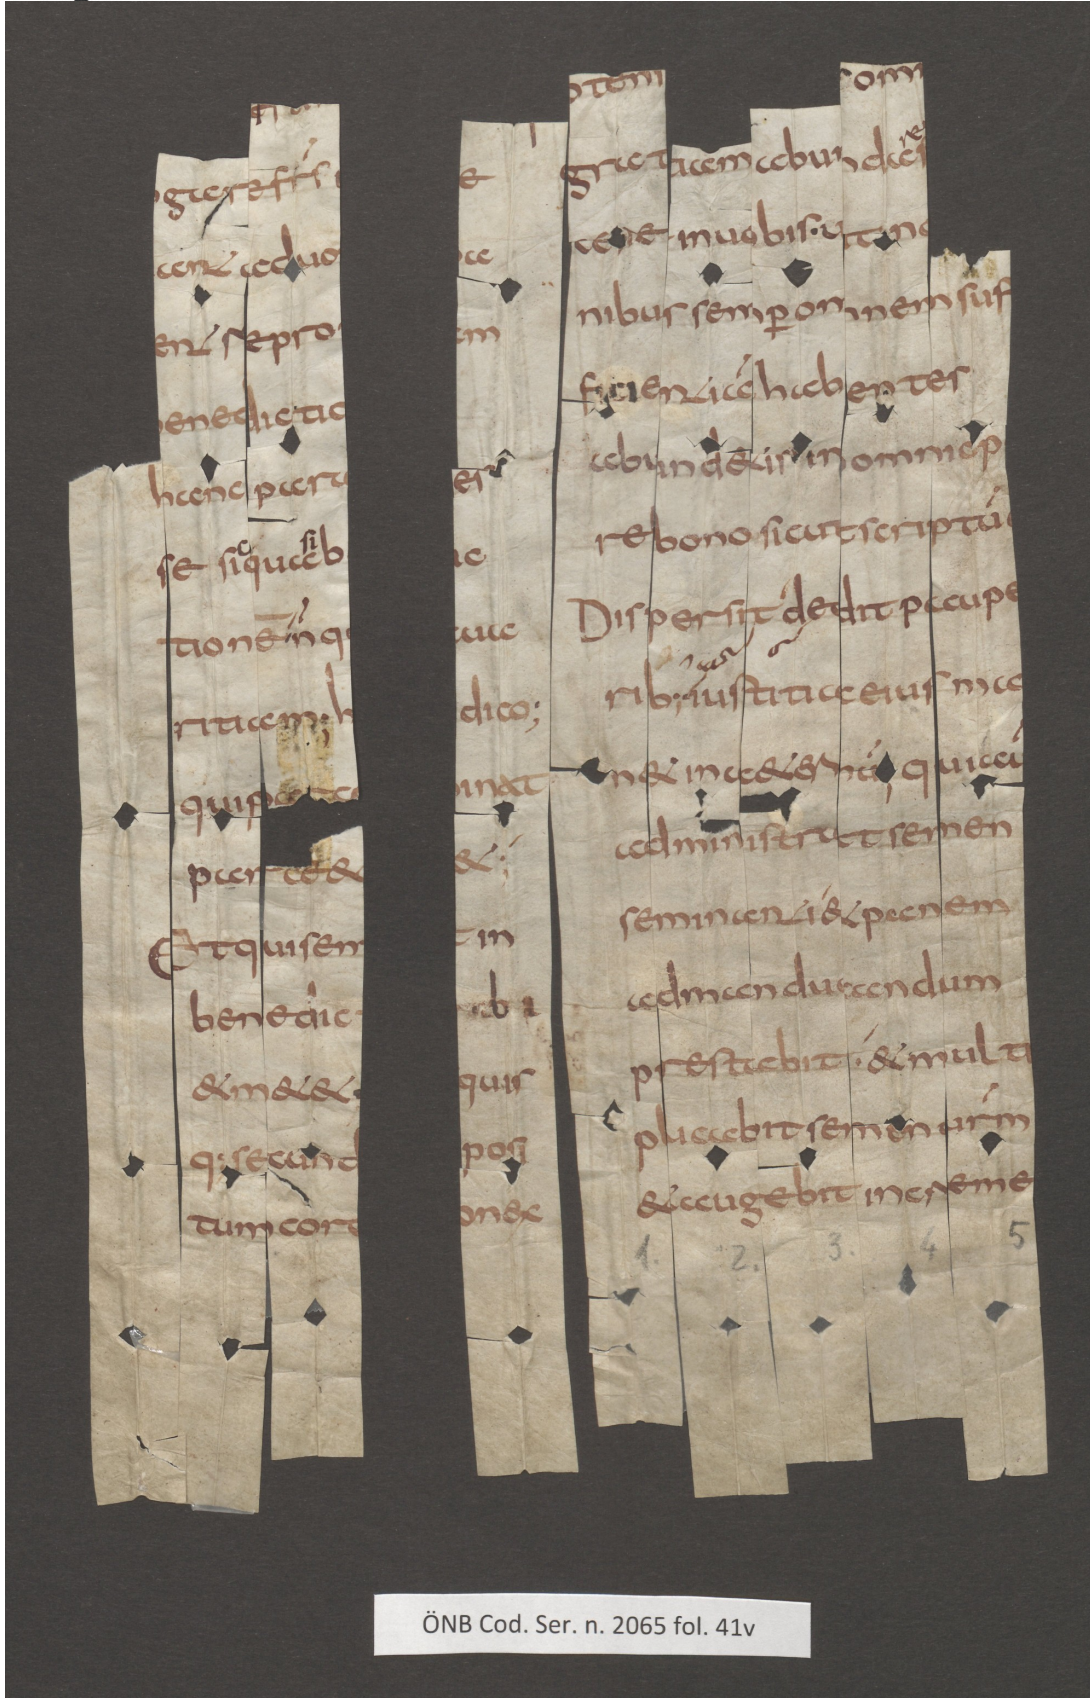 ogare frs e
ant ad uo a
ent & pro em
benedictio
hanc para es
se sic quasi b ic
tione n q uua
ritiam; h dico;
qui parce inat
parce & &;
Et qui sem t in
benedic b i
& m&& quis
q; secund posi
tum cord onde
otem omn
gratiam abundare
in uobis. ut in o
nibus semp omnem suf
ficientia habentes
abund&is in omne op
re bono sicut scriptu e
Dispersit dedit paupe
rib; iustitia eius ma
n& in a&ernu, qui au
administrat semen
seminanti & panem
ad manducandum
prestabit. & multi
plicabit semen urm
& augebit increme
1. 2. 3. 4 5
ÖNB Cod. Ser. n. 2065 fol. 41v